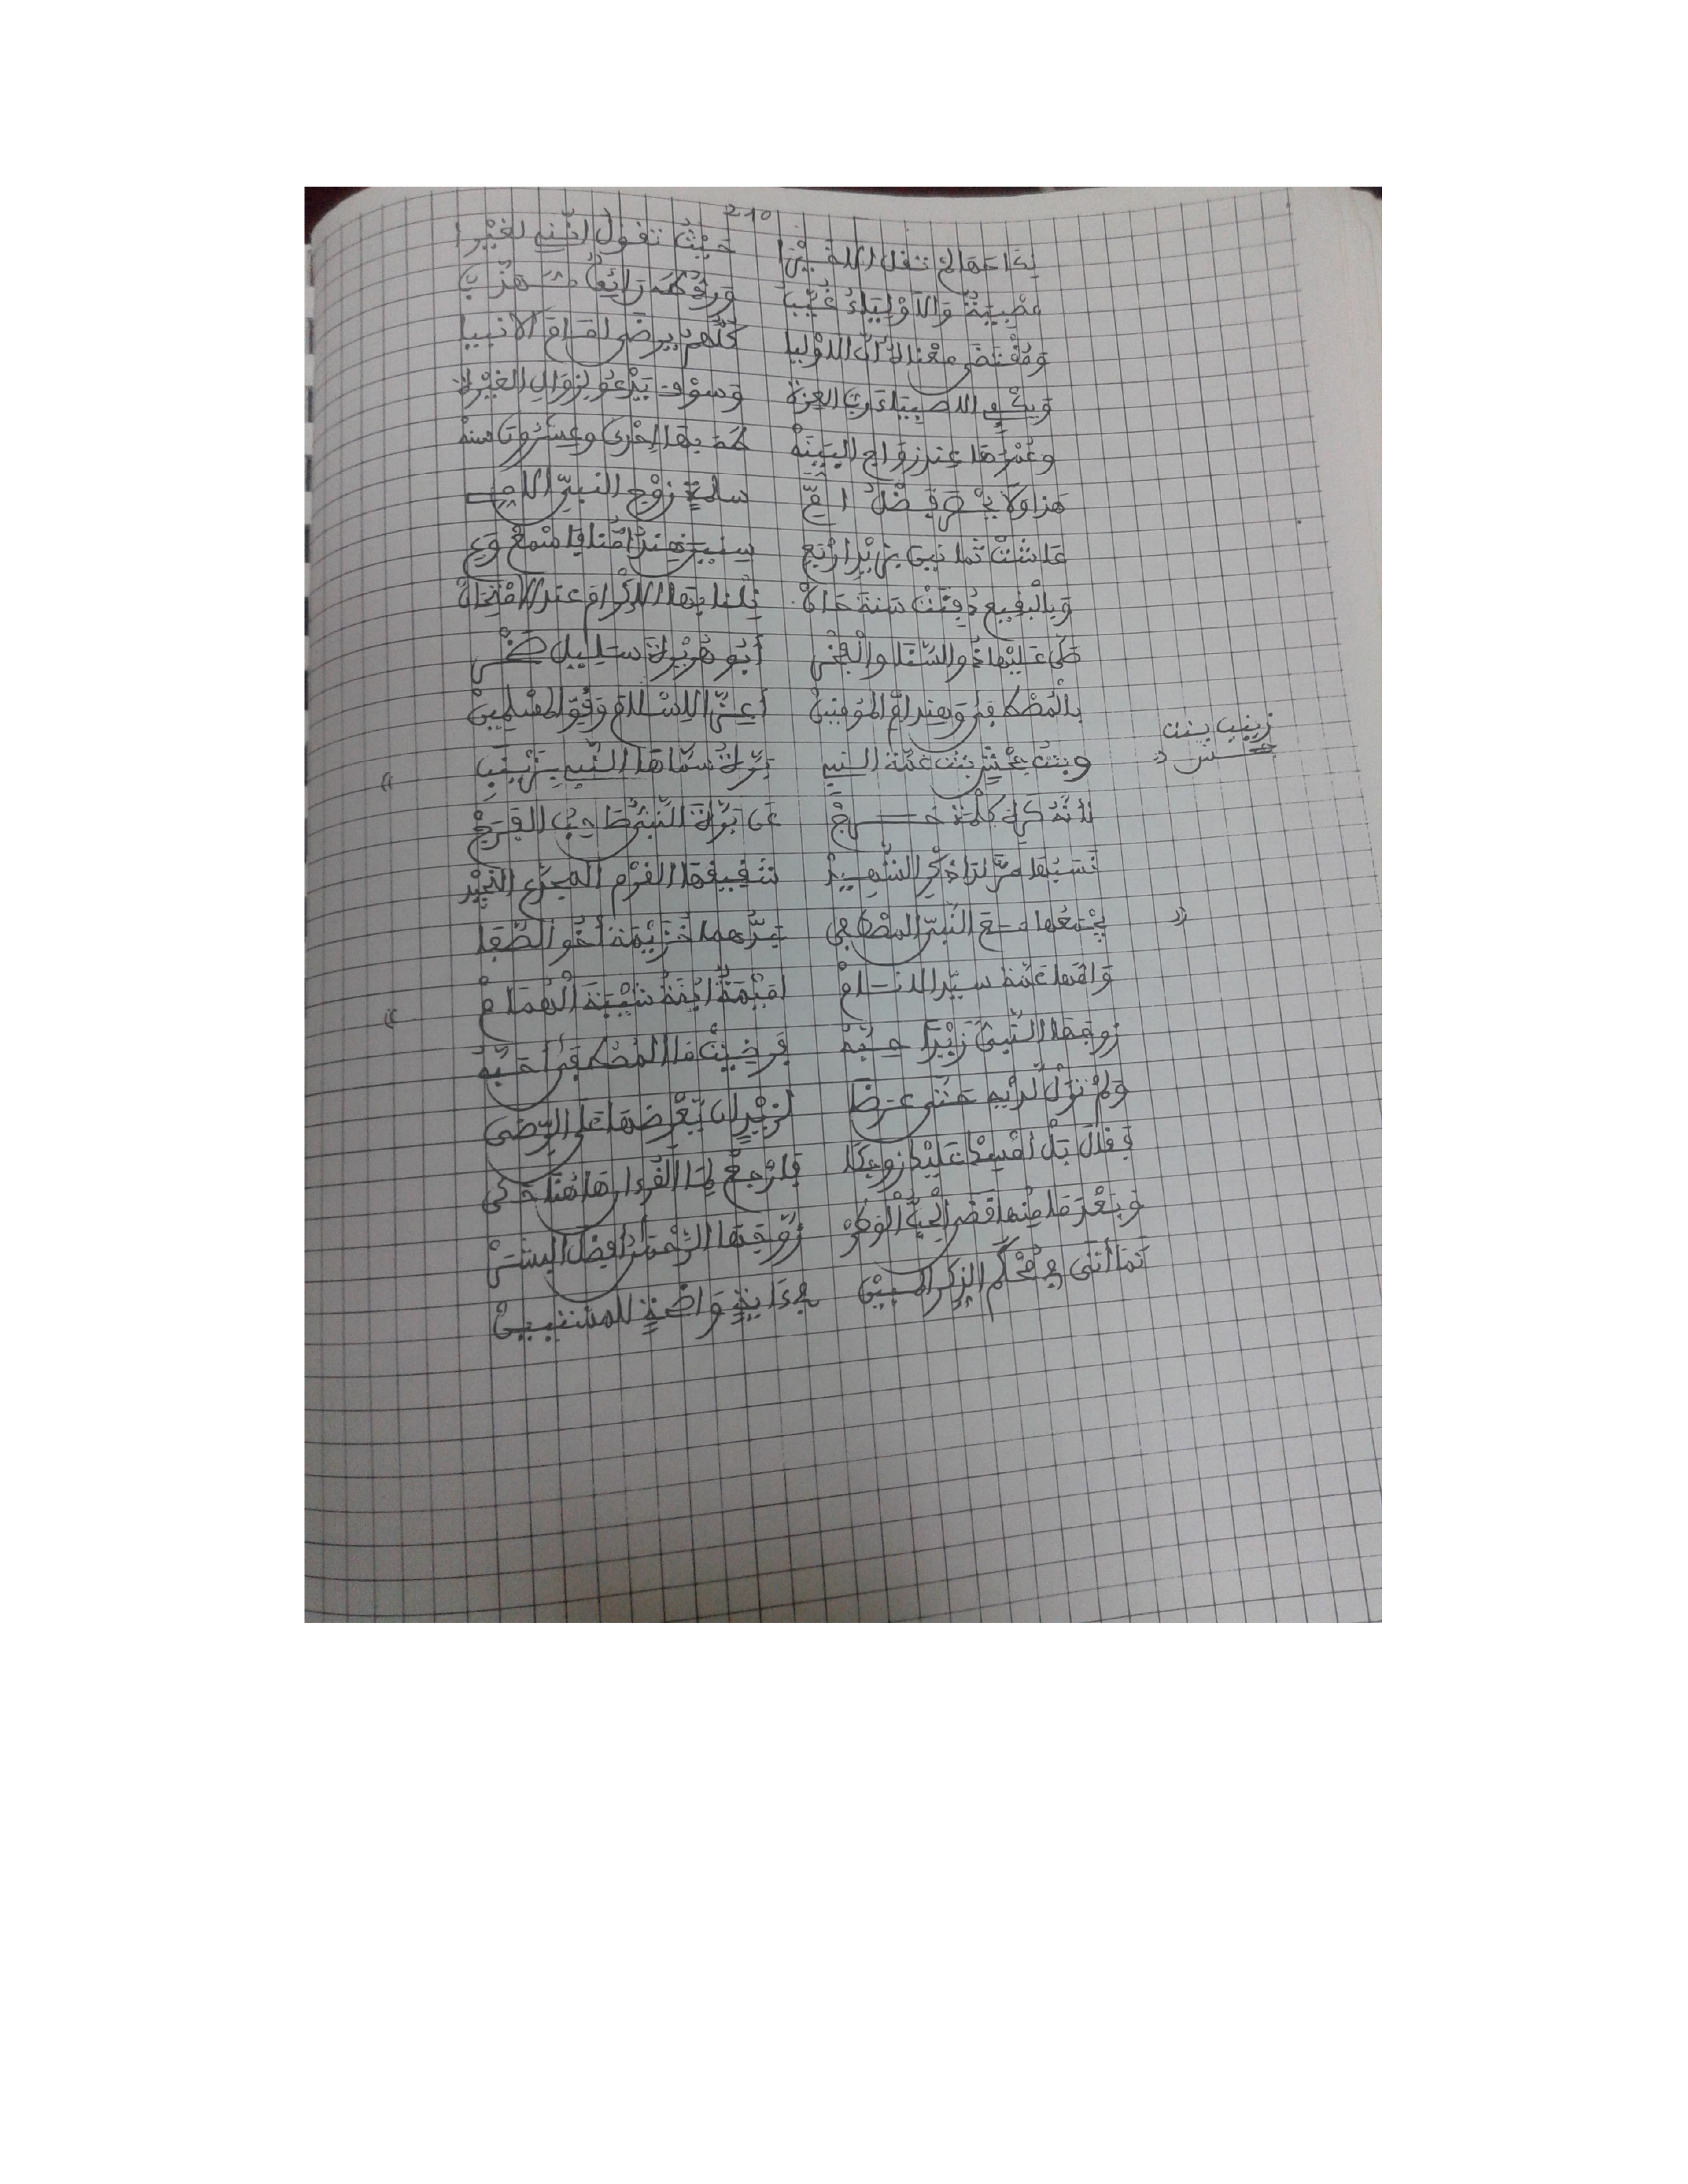 210
لدا عمالم تفل الا خيرا حيث تفول إنني لغيرا
مصبية والأولياء غيب ورد طه رائعا مهذب
ومفتضى معنا لأن الاوليا كلهم يرضى إمام الانبيا
ويكفي الاصبياء رب العزة وسوف يدعو بزوال الغيرة
وعمرها عند زواج البينة طه بها إحدى وعشرون سنة
هذا ولا يحصر فضل أم سلمة زوج النبي الامي
عاشت ثمانين بزيد أربع سنين هند أمنا فاسمع وع
وبالبفيع دفنت سنة نلنا بها الاكرام عند الامتحان
صلى عليها ذو السنا والبخر أبو هريرة سليل صخر
بالمصطفى وهند أم المومنين أعز الاسلام وفو المسلمين
زينب بنت جحش
وبنت جحش بنت عمة النبي برة سماها النبي بزينب
لأنه كره كلمة خرج عن برة النبي صاحب الفرج
نسبها مر لدا ذكر الشهيد شفيفها الفرم المجدع النجيد
يجمعها مع النبي المصطفى جدهما خزيمة أخو الصفا
وامها عمة سيد الانام اميمة ابنة شيبة الهمام
زوجها النبي زيدا حبه فرضيت ما المصطفى أحبه
ولم تزل لديه حتى عرضا لزيد ان يعرضها على الرضى
ففال بل امسك عليك زوجكا فارجع لما الفرءان هاهنا حكى
وبعد ما منها فضى الحب الوطر زوجها الرحمن أفضل البشر
كما أتى في محكم الذكر المبين في ءاية واضحة للمستبين